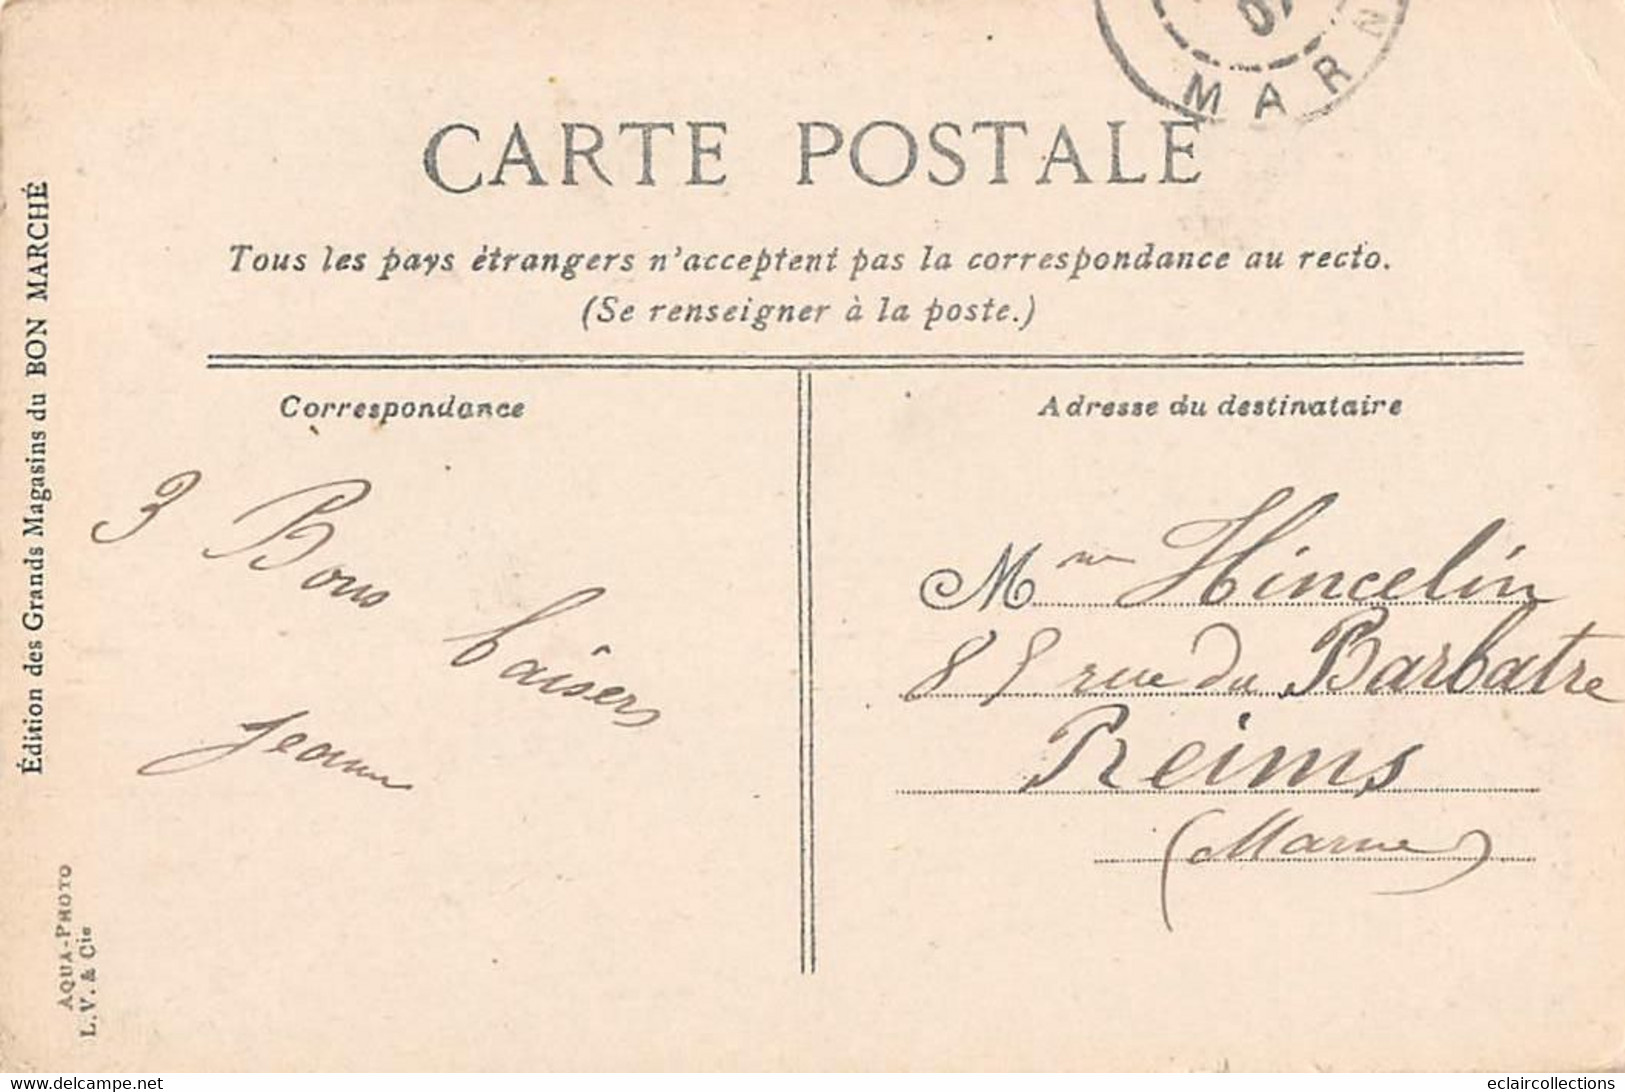 MARN
CARTE POSTALE
Tous les pays étrangers n'acceptent pas la correspondance au recto.
(Se renseigner à la poste.)
Correspondance
3 Bons
baisers
Jeanne
Adresse du destinataire
Mme Hincelin
85 rue du Barbatre
Reims
(Marne)
Édition des Grands Magasins du BON MARCHÉ
AQUA-PHOTO
L.V. & Cie
www.delcampe.net
eclaircollections